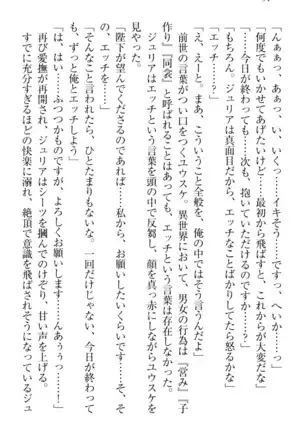 「んぁぁっ、ぁっ、いい、いくっ……イキそうっ……ですっ、へいかっ……」
「何度でもいかせてあげたいけど……最初から飛ばすと、これからが大変だな」
「……今日が終わっても……次も、抱いていただけるのですか……?」
「もちろん。ジュリアは真面目だから、エッチなことばかりしてたら怒るかな」
「エッチ……?」
「え、えーと。まあ、こういうこと全般を、俺の中ではそう言うんだよ」
前世の言葉がつい口をつくユウスケ。異世界において、男女の行為は『営み』『子
作り』『同衾』と呼ばれることはあっても、エッチという言葉は存在しなかった。
ジュリアはエッチという言葉を頭の中で反芻し、顔を真っ赤にしながらユウスケを
見やった。
「陛下が望んでくださるのであれば……私から、お願いしたいくらいです……そ、そ
の、エッチを……」
「そんなこと言われたら、ひとたまりもないな。一回だけじゃない、今日が終わって
も、ずっと俺とエッチしよう」
「は、はいっ……ふつつかものですが、よろしくお願いします……んあぅぅっ……!」
再び愛撫が再開され、ジュリアはシーツを掴んでのけぞり、甘い声を上げる。
すでに充分すぎるほどの快楽に溺れ、絶頂で意識を飛ばされそうになっているジュ